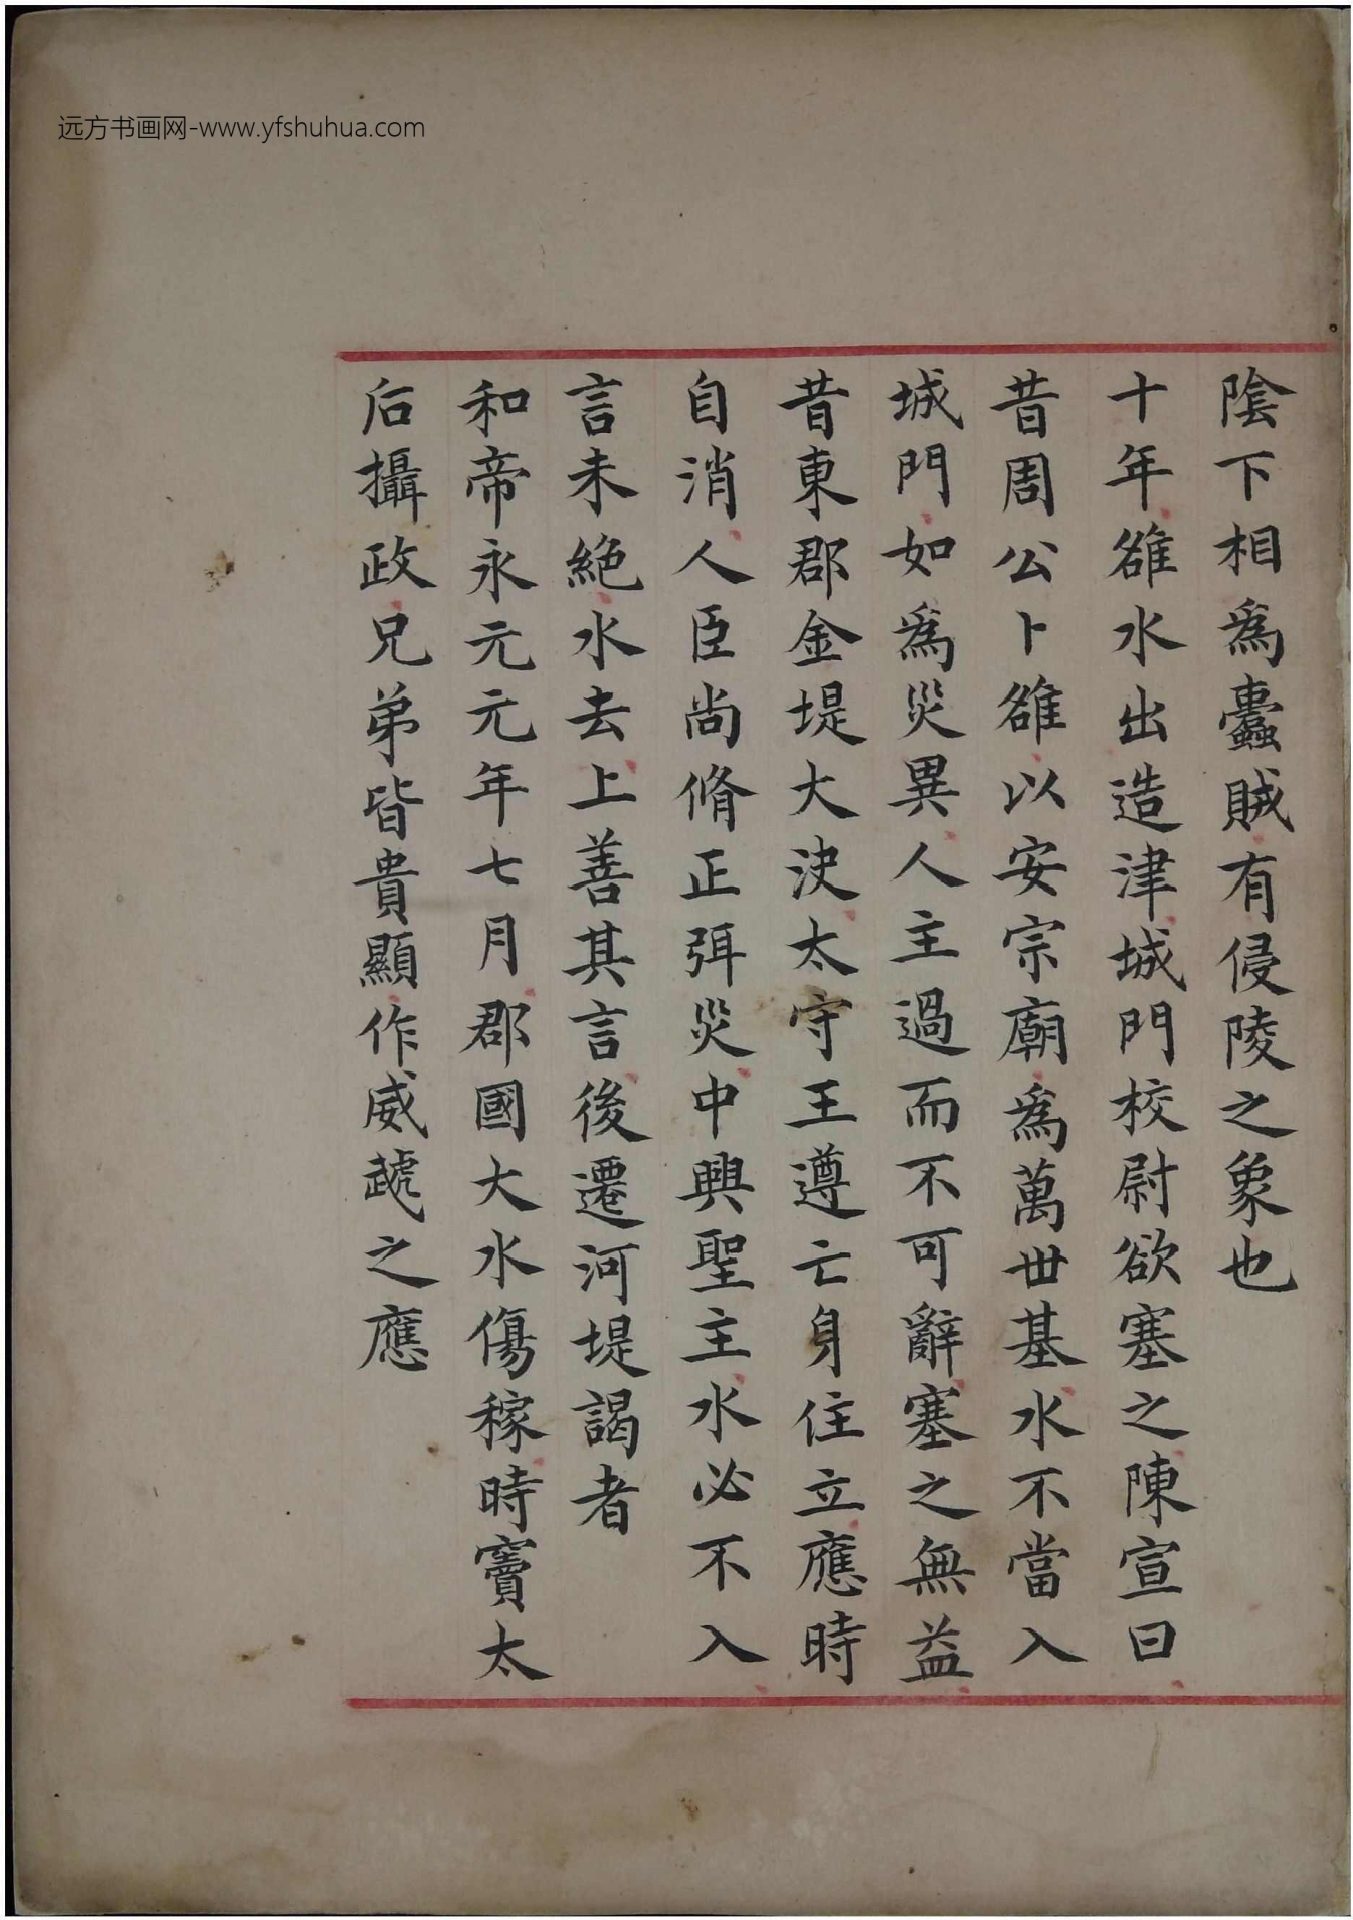 远方书画网-www.yfshuhua.com
陰下相爲蠹賊有侵陵之象也
十年雒水出造津城門校尉欲塞之陳宣曰
昔周公卜雒以安宗廟爲萬世基水不當入
城門如爲災異人主過而不可辭塞之無益
昔東郡金堤大決太守王遵亡身住立應時
自消人臣尚脩正弭災中興聖主水必不入
言未絶水去上善其言後遷河堤謁者
和帝永元元年七月郡國大水傷稼時竇太
后攝政兄弟皆貴顯作威虣之應